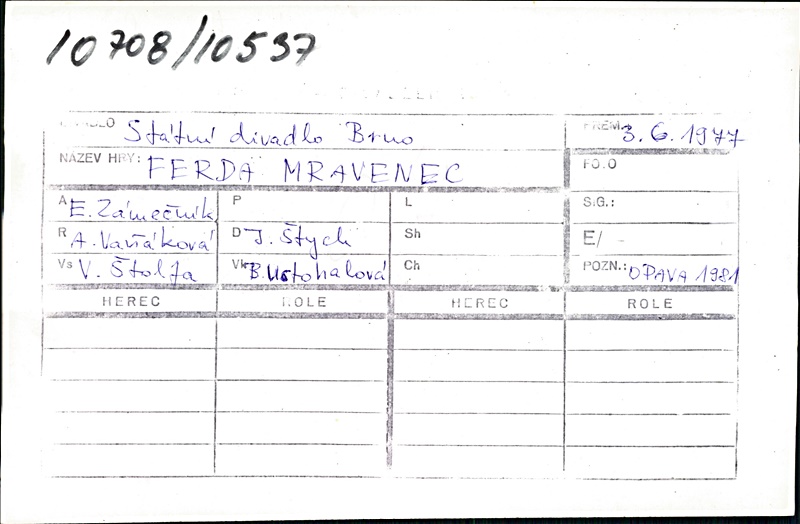 10708/10537
DIVADLO Státní divadlo Brno PREM. 3. 6. 1977
NÁZEV HRY: FERDA MRAVENEC FOTO
A E. Zámečník P L S.G.:
R A. Vařáková D J. Štych Sh E/ -
Vs V. Štolfa Vk B. Ustohalová Ch POZN.: OPAVA 1981
HEREC ROLE HEREC ROLE